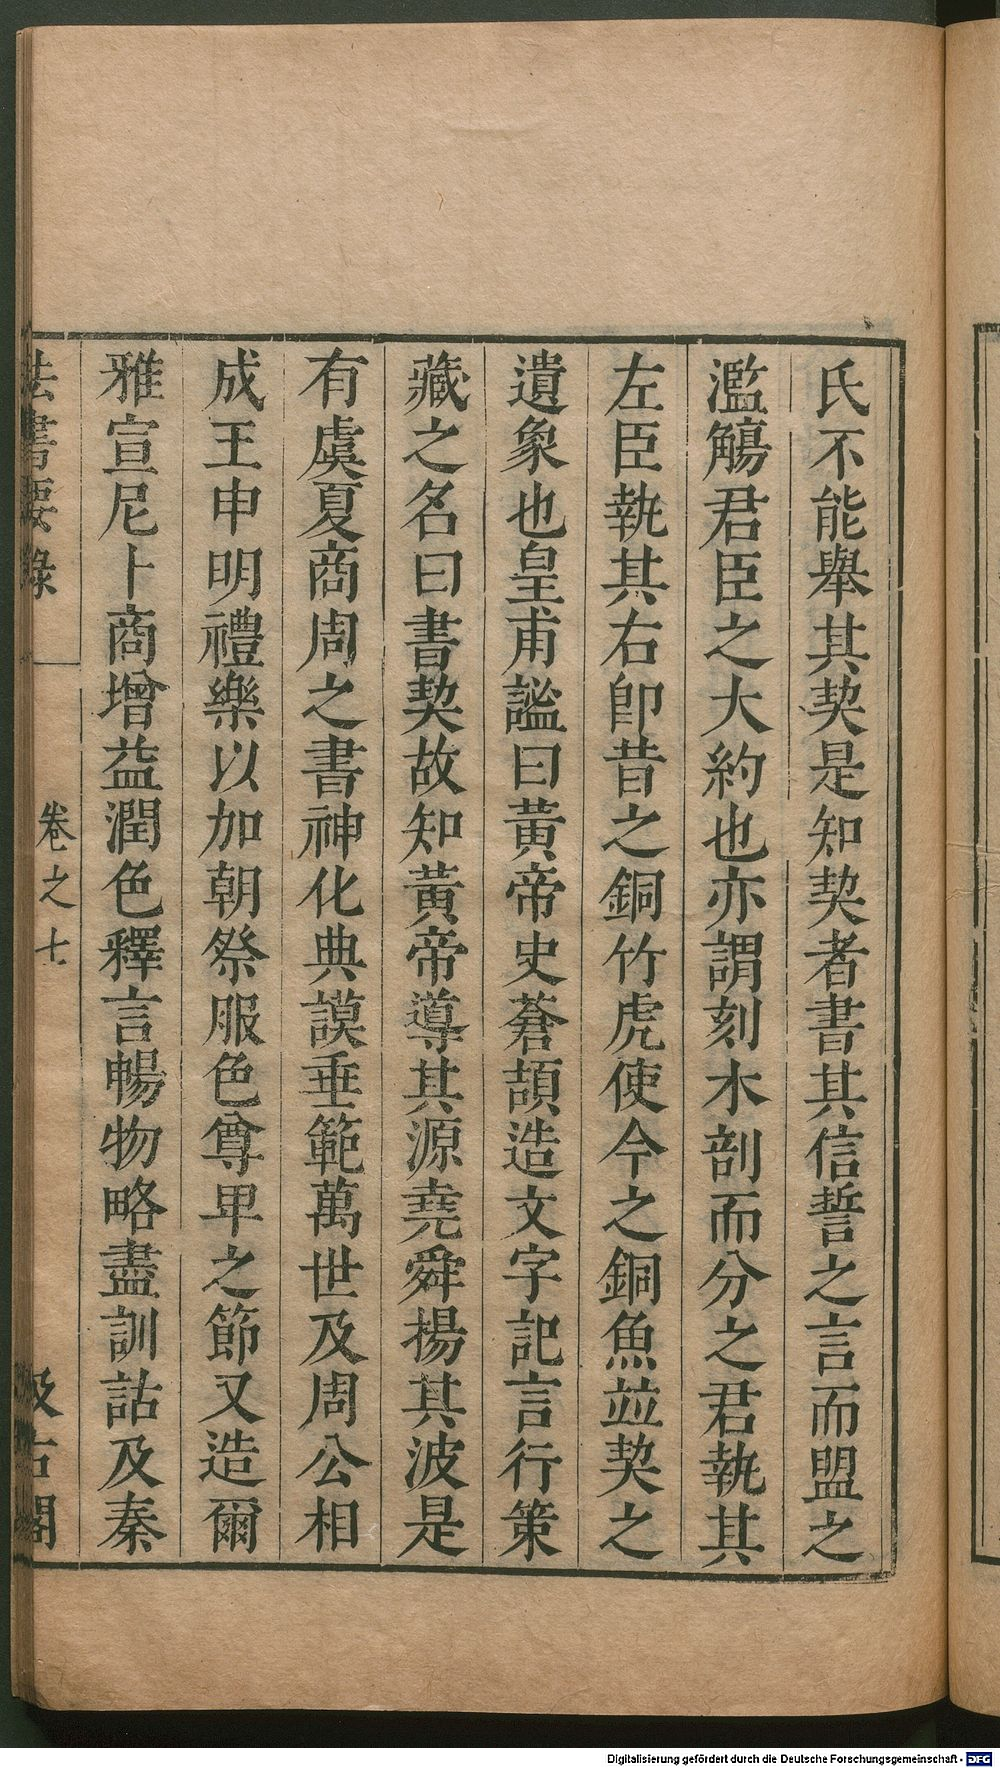 氏不能舉其契是知契者書其信誓之言而盟之
濫觴君臣之大約也亦謂刻木剖而分之君執其
左臣執其右卽昔之銅竹虎使今之銅魚竝契之
遺象也皇甫謐曰黃帝史蒼頡造文字記言行策
藏之名曰書契故知黃帝導其源堯舜揚其波是
有虞夏商周之書神化典謨垂範萬世及周公相
成王申明禮樂以加朝祭服色尊卑之節又造爾
雅宣尼卜商增益潤色釋言暢物略盡訓詁及秦
法書要錄
卷之七
汲古閣
Digitalisierung gefördert durch die Deutsche Forschungsgemeinschaft - DFG